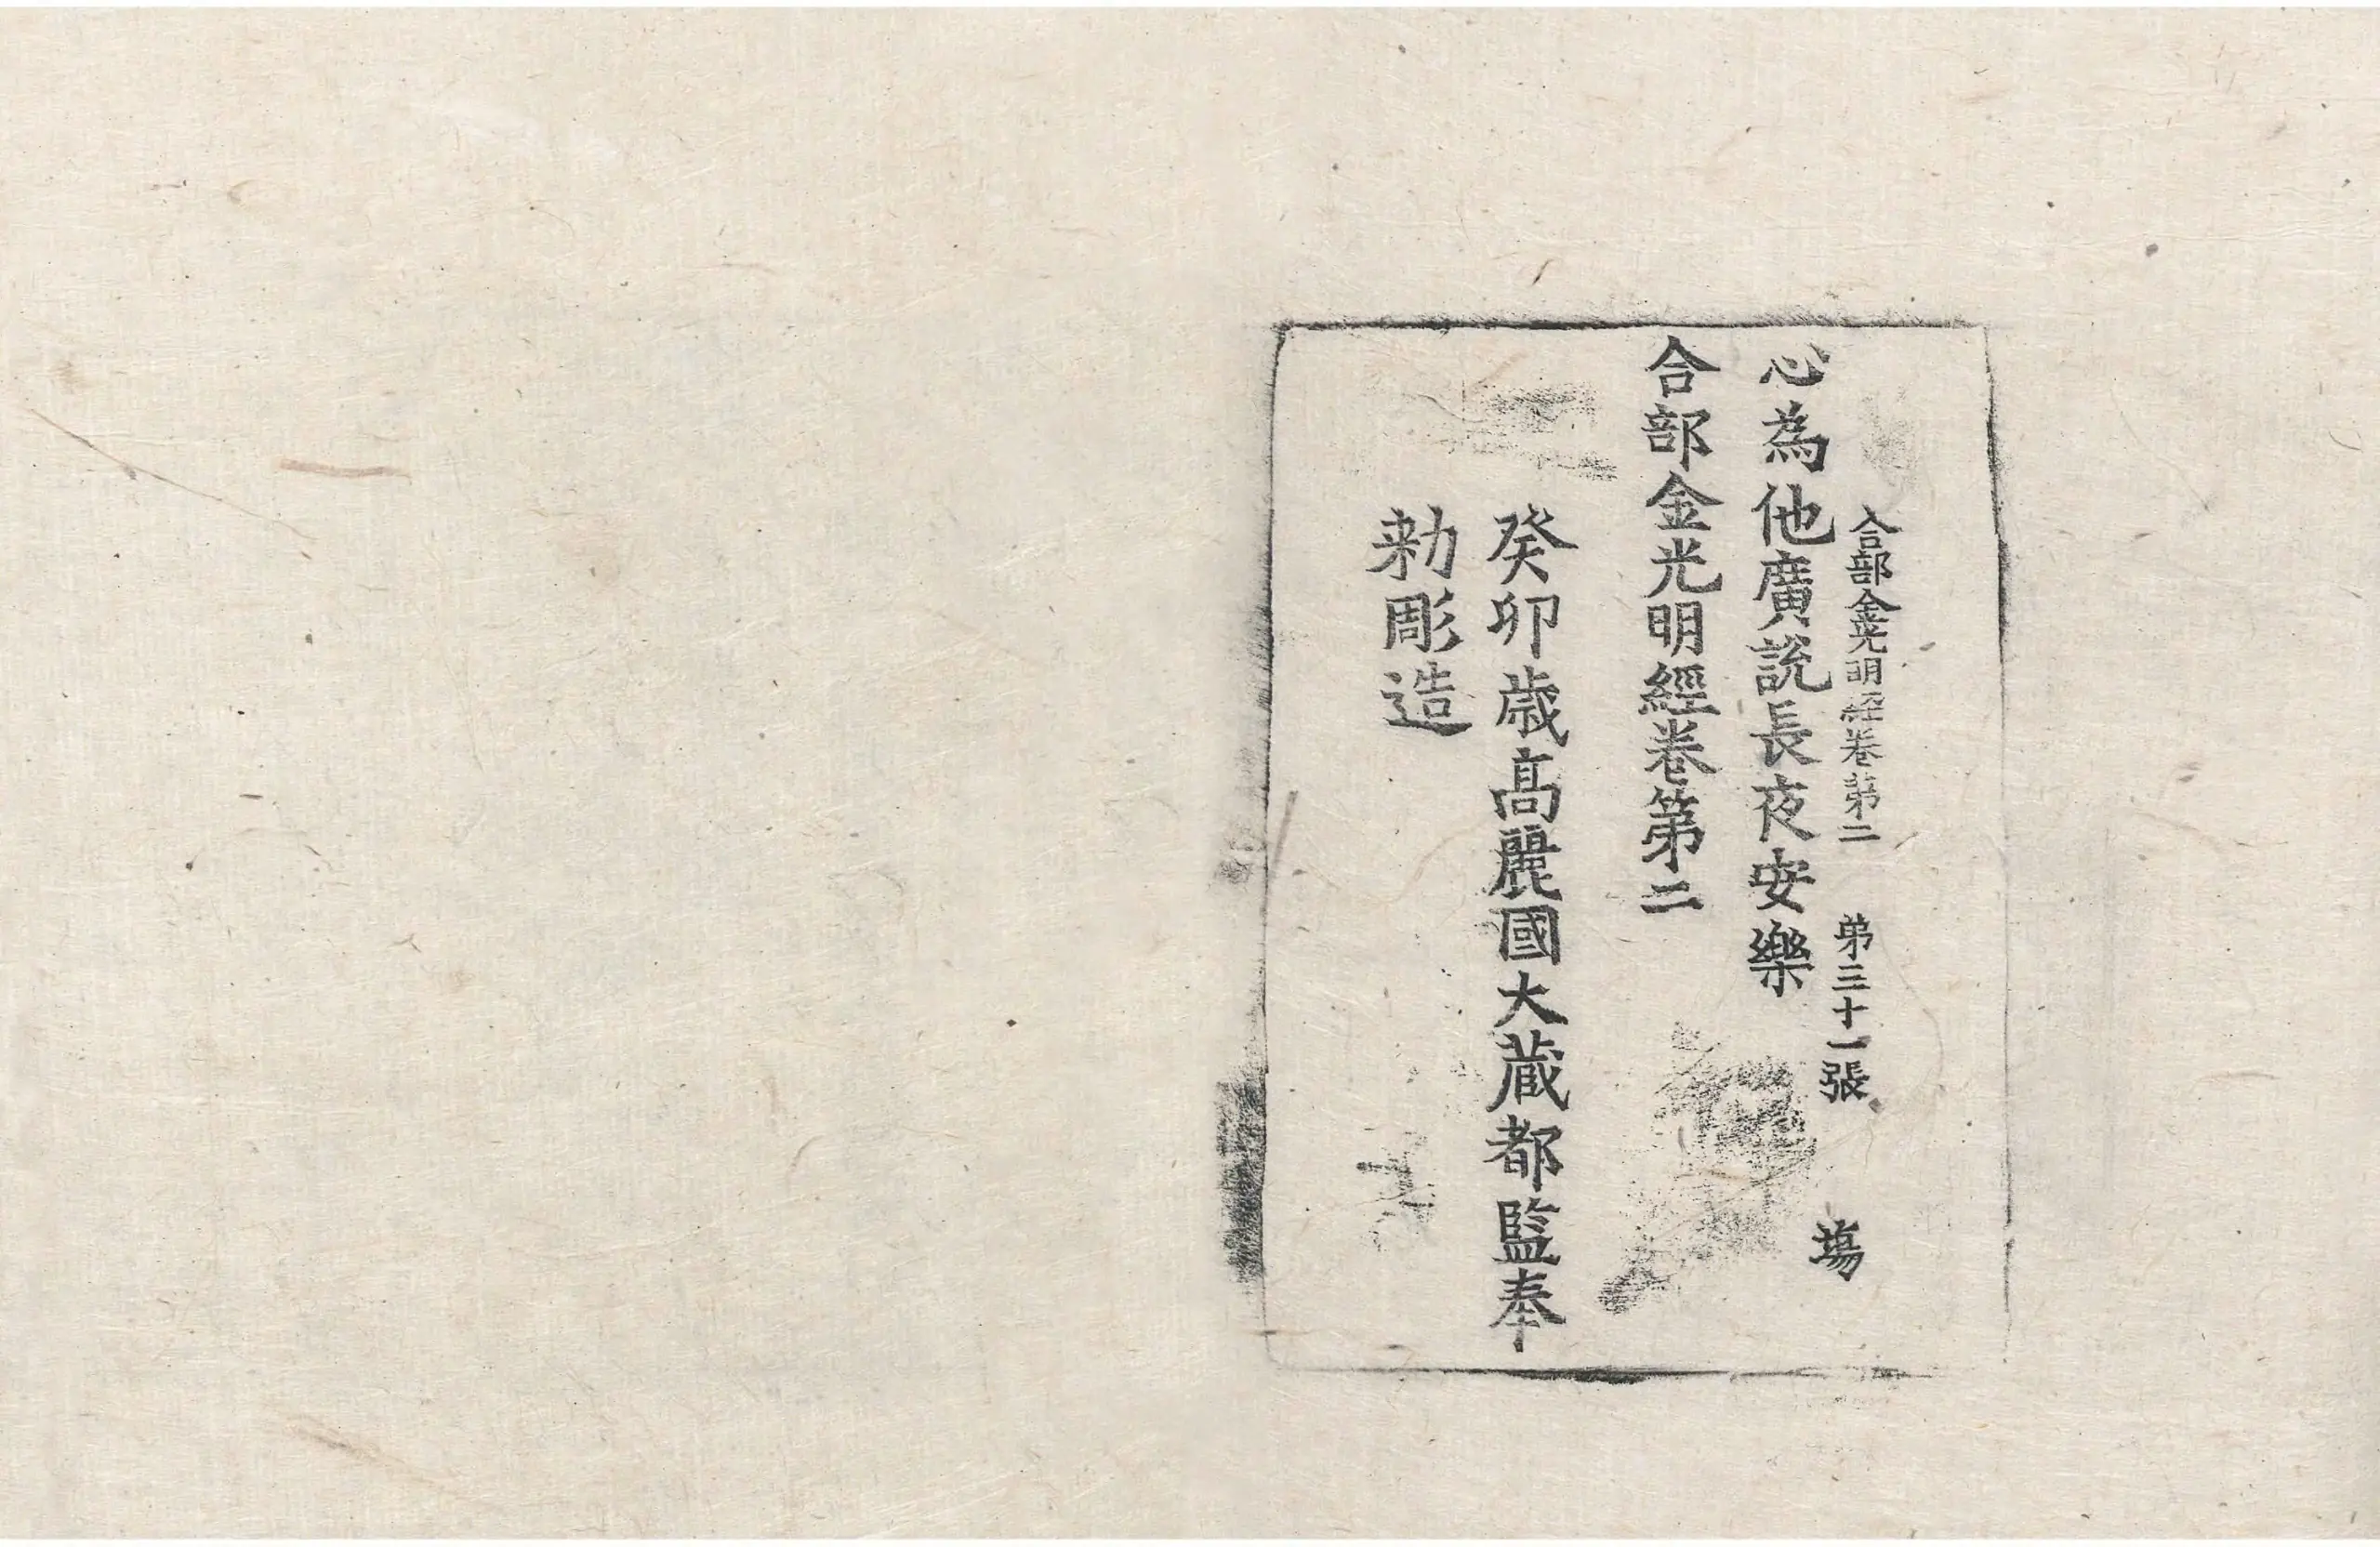 合部金光明經卷第二 第三十一張 場
心為他廣說長夜安樂
合部金光明經卷第二
癸卯歲高麗國大藏都監奉
勑彫造